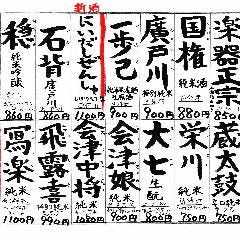 新酒
楽器正宗
850円
国権
純米酒
880円
廣戸川
特別純米
900円
一歩己
純米酒
900円
にいだしぜんしゅ
1080円
石背
廣戸川
860円
穏
純米吟醸
860円
蔵太鼓
750円
栄川
純米
750円
大七
生酛
800円
会津娘
純米
900円
会津中将
純米
1080円
飛露喜
特別純米
990円
寫楽
純米
1100円